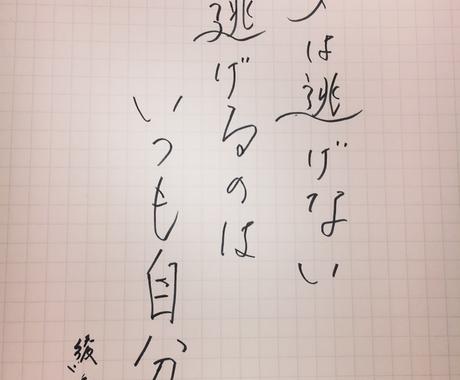 は逃げない
逃げるのは
いつも自分